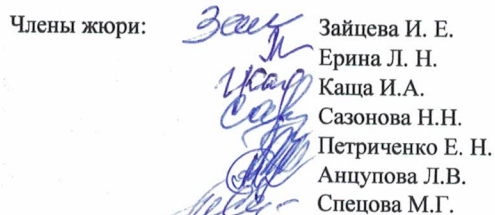 Члены жюри: Зайцева И. Е.
Ерина Л. Н.
Каща И.А.
Сазонова Н.Н.
Петриченко Е. Н.
Анцупова Л.В.
Спецова М.Г.